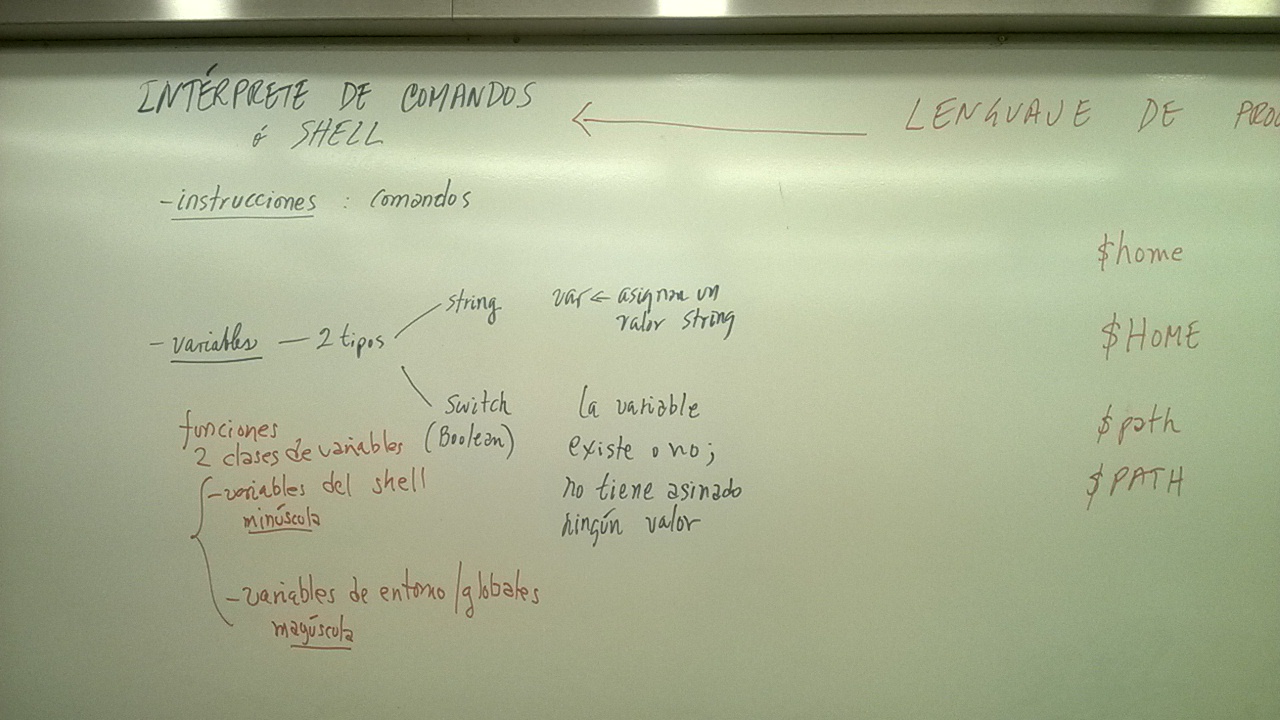 INTÉRPRETE DE COMANDOS
ó SHELL
← LENGUAJE DE PROG
- instrucciones : comandos
- variables — 2 tipos
string
var ← asignan un
valor string
switch
(Boolean)
la variable
existe o no;
no tiene asinado
ningún valor
funciones
2 clases de variables
- variables del shell
minúscula
- variables de entorno / globales
mayúscula
$home
$HOME
$path
$PATH